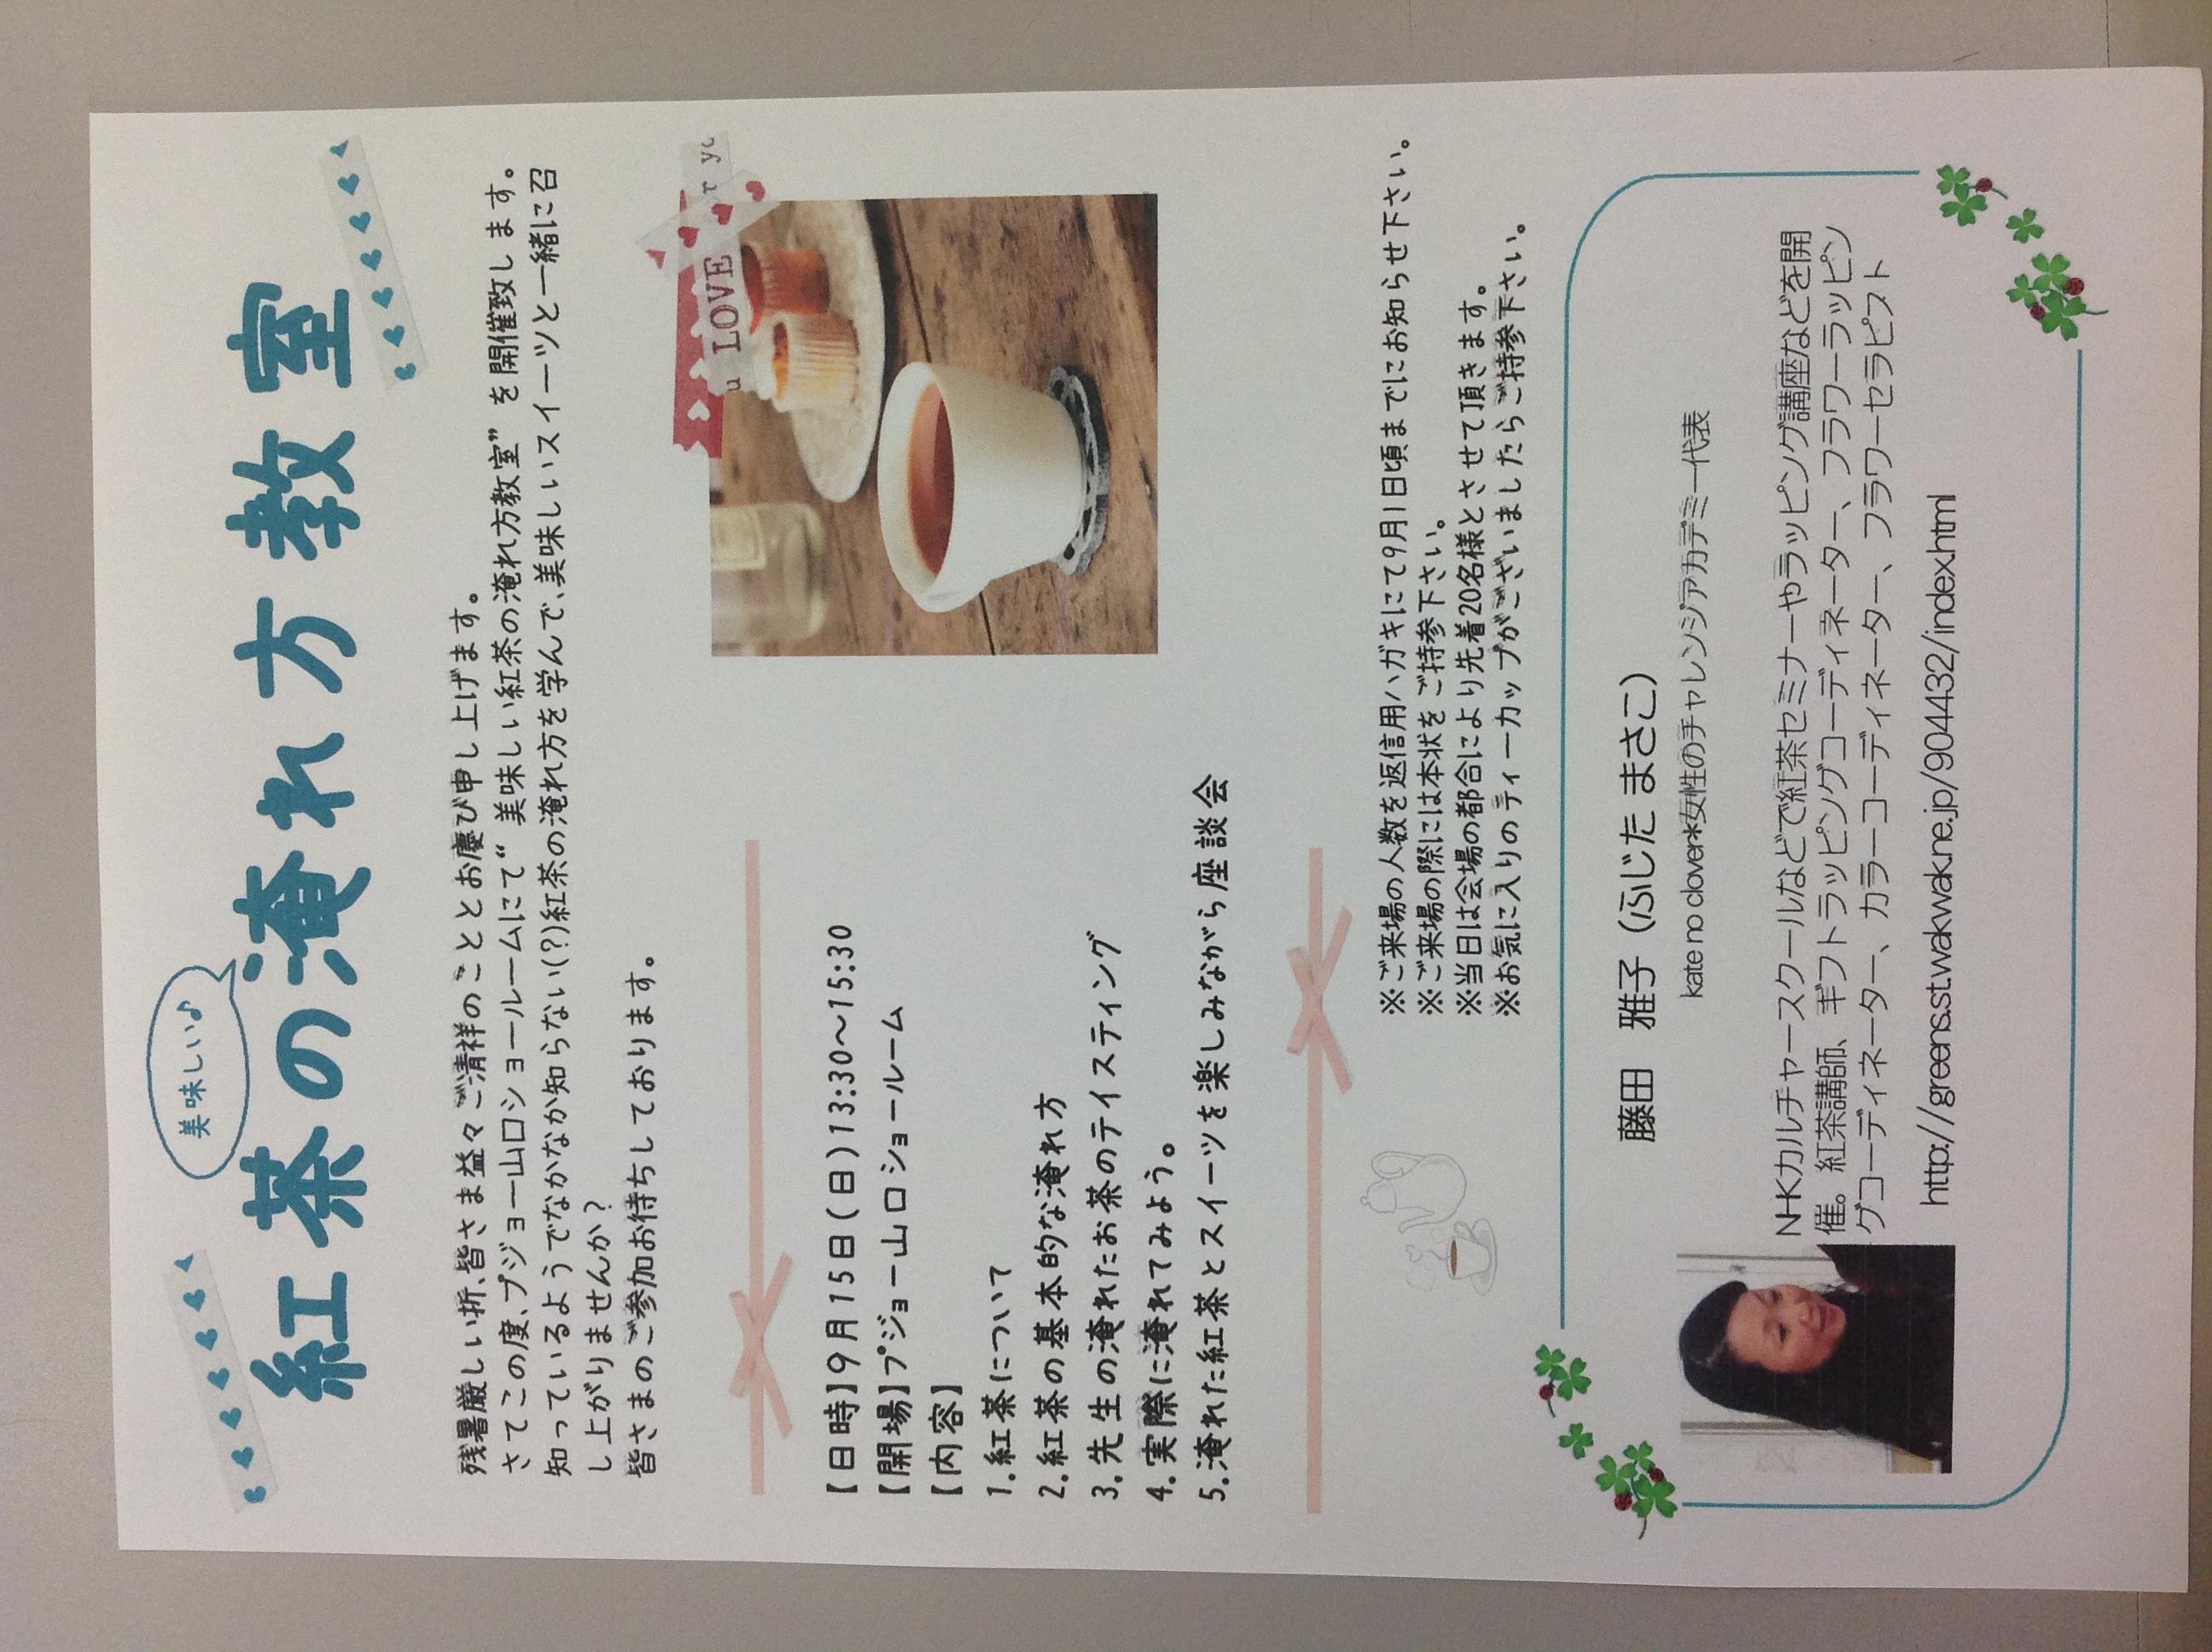 美味しい♪
紅茶の淹れ方教室
残暑厳しい折、皆さま益々ご清祥のこととお慶び申し上げます。
さてこの度、プジョー山口ショールームにて“美味しい紅茶の淹れ方教室”を開催致します。
知っているようでなかなか知らない(?)紅茶の淹れ方を学んで、美味しいスイーツと一緒に召
し上がりませんか?
皆さまのご参加お待ちしております。
u LOVE
r yo
【日時】9月15日(日)13:30～15:30
【開場】プジョー山口ショールーム
【内容】
1.紅茶について
2.紅茶の基本的な淹れ方
3.先生の淹れたお茶のテイスティング
4.実際に淹れてみよう。
5.淹れた紅茶とスイーツを楽しみながら座談会
※ご来場の人数を返信用ハガキにて9月1日頃までにお知らせ下さい。
※ご来場の際には本状をご持参下さい。
※当日は会場の都合により先着20名様とさせて頂きます。
※お気に入りのティーカップがございましたらご持参下さい。
藤田 雅子（ふじた まさこ）
kate no clover*女性のチャレンジアカデミー代表
NHKカルチャースクールなどで紅茶セミナーやラッピング講座などを開
催。紅茶講師、ギフトラッピングコーディネーター、フラワーラッピン
グコーディネーター、カラーコーディネーター、フラワーセラピスト
http://greens.st.wakwak.ne.jp/904432/index.html